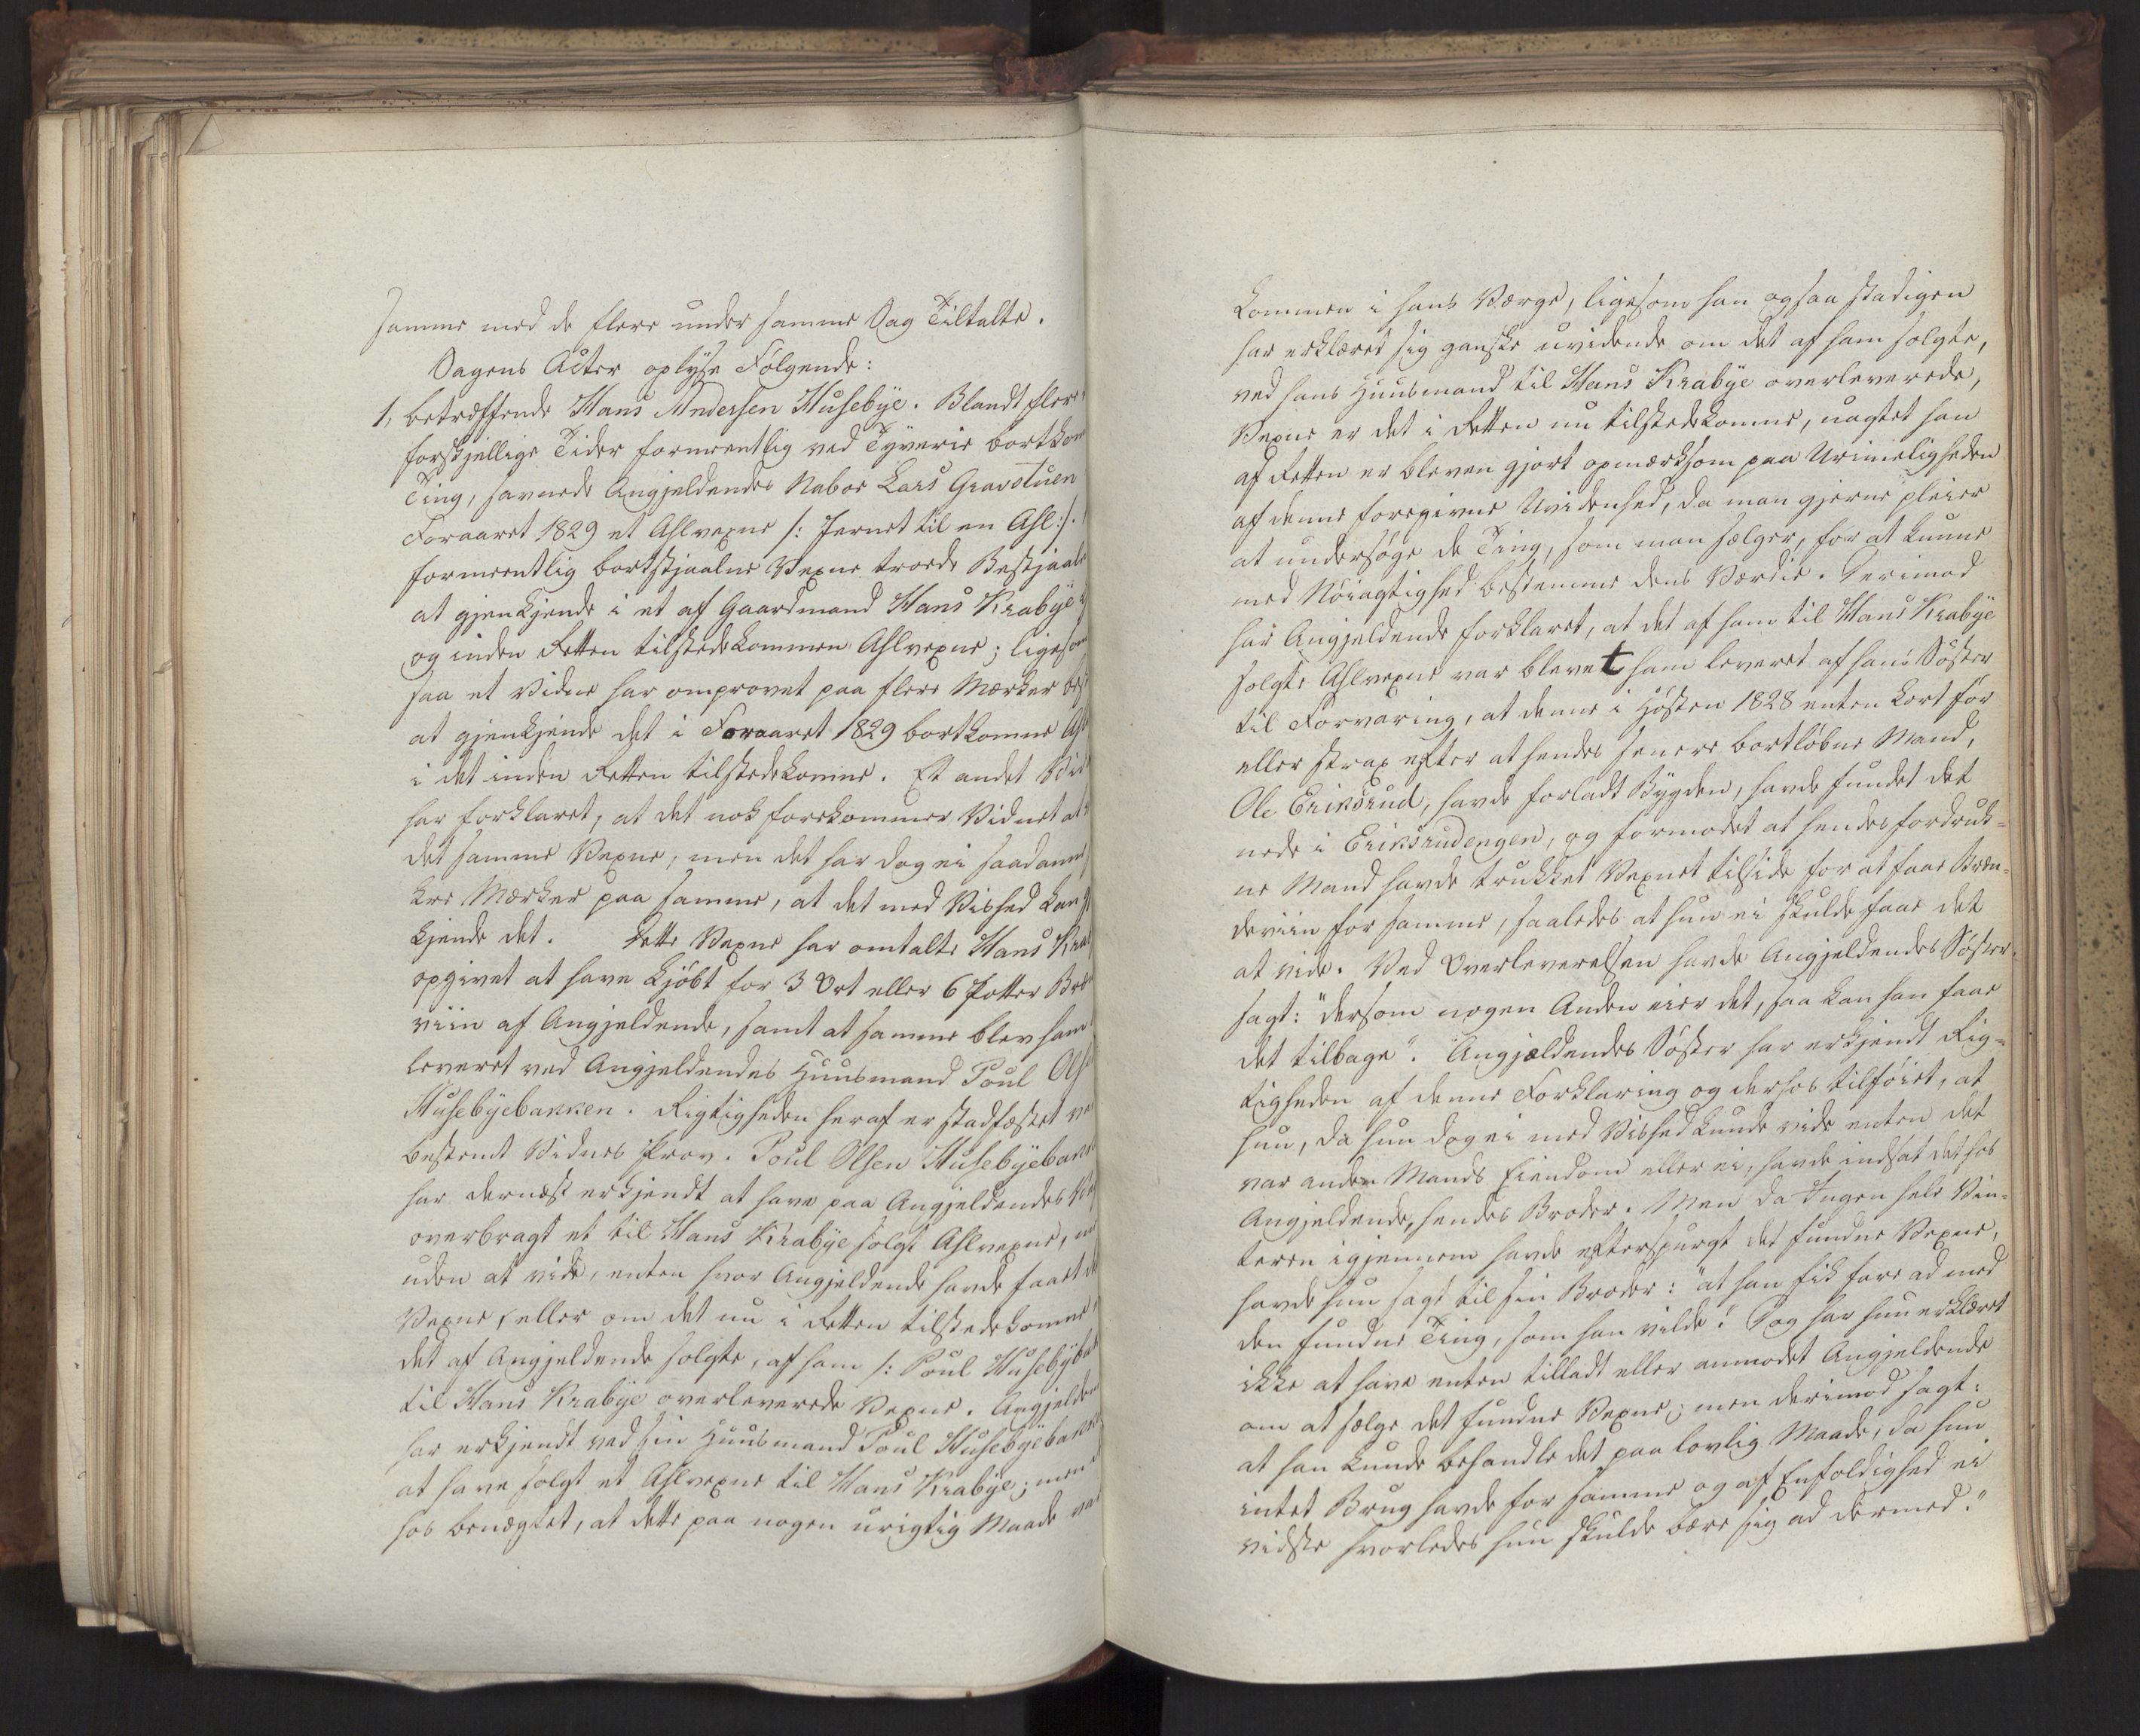 samme med de flere under samme Sag Tiltalte.
Sagens Acter oplyse Følgende:
1, betræffende Hans Andersen Husebye. Blandt flere
forskjellige Tider formeentlig ved Tyverie bortkom
Ting, savnede Angjeldendes Naboe Lars Gravstuen
Foraaret 1829 et Ahlvexne /: Jernet til en Ahl :/.
formeentlig bortstjaalne Vexne troede Bestjaal
at gjenkjende i et af Gaardmand Hans Krabye
og inden Retten tilstedekommen Ahlvexne; ligesom
saa et Vidne har omprovet paa flere Mærker
at gjenkjende det i Foraaret 1829 bortkomne
i det inden Retten tilstedekomne. Et andet
har forklaret, at det nok forekommer Vidnet at
det samme Vexne, men det har dog ei saadanne
kre Mærker paa samme, at det med Vished kan
kjende det. Dette Vexne har omtalte Hans
opgivet at have kjøbt for 3 Ort eller 6 Potter
viin af Angjeldende, samt at samme blev ham
leveret ved Angjeldendes Huusmand Poul
Husebyebakken. Rigtigheden heraf er stadfæstet
bestemt Vidnes Prov. Poul Olsen Husebyebakk
har dernæst erkjendt at have paa Angjeldendes
overbragt et til Hans Krabye solgt Ahlvexne,
uden at vide, enten hvor Angjeldende havde faaet
Vexne, eller om det nu i Retten tilstedekomne
det af Angjeldende solgte, af ham /: Poul Husebyebak
til Hans Krabye overleverede Vexne. Angjelden
har erkjendt ved sin Huusmand Poul Husebyebakk
at have solgt et Ahlvexne til Hans Krabye; men
hos benægtet, at dette paa nogen urigtig Maade var
kommen i hans Værge, ligesom han ogsaa stadigen
har erklæret sig ganske uvidende om det af ham solgte,
ved hans Huusmand til Hans Krabye overleverede,
Vexne er det i Retten nu tilstedekomne, uagtet han
af Retten er bleven gjort opmærksom paa Urimeligheden
af denne foregivne Uvidenhed, da man gjerne pleier
at undersøge de Ting, som man sælger, for at kunne
med Nöiagtighed bestemme dens Værdie. Derimod
har Angjeldende forklaret, at det af ham til Hans Krabye
solgte Ahlvexne var blevet ham leveret af hans Söster
til Forvaring, at denne i Hösten 1828 enten kort för
eller strax efter at hendes senere bortlöbne Mand,
Ole Eriksrud, havde forladt Bygden, havde fundet det
nede i Eriksrudengen, og formodet at hendes fordruk-
ne Mand havde trukket Vexnet tilside for at faae Bræn-
deviin for samme, saaledes at hun ei skulde faae det
at vide. Ved Overleverelsen havde Angjeldendes Söster
sagt: "dersom nogen Anden eier det, saa kan han faae
det tilbage". Angjældendes Söster har erkjendt Rig-
tigheden af denne Forklaring og derhos tilföiet, at
hun, da hun dog ei med Vished kunde vide enten det
var anden Mands Eiendom eller ei, havde indsat det hos
Angjeldende, hendes Broder. Men da Ingen hele Vin-
teren igjennem havde efterspurgt det fundne Vexne,
havde hun sagt til sin Broder: "at han fik fare ad med
den fundne Ting, som han vilde". Dog har hun erklæret
ikke at have enten tilladt eller anmodet Angjeldende
om at sælge det fundne Vexne; men derimod sagt:
at han kunde behandle det paa lovlig Maade, da hun
intet Brug havde for samme og af Enfoldighed ei
vidste hvorledes hun skulde bære sig ad dermed."